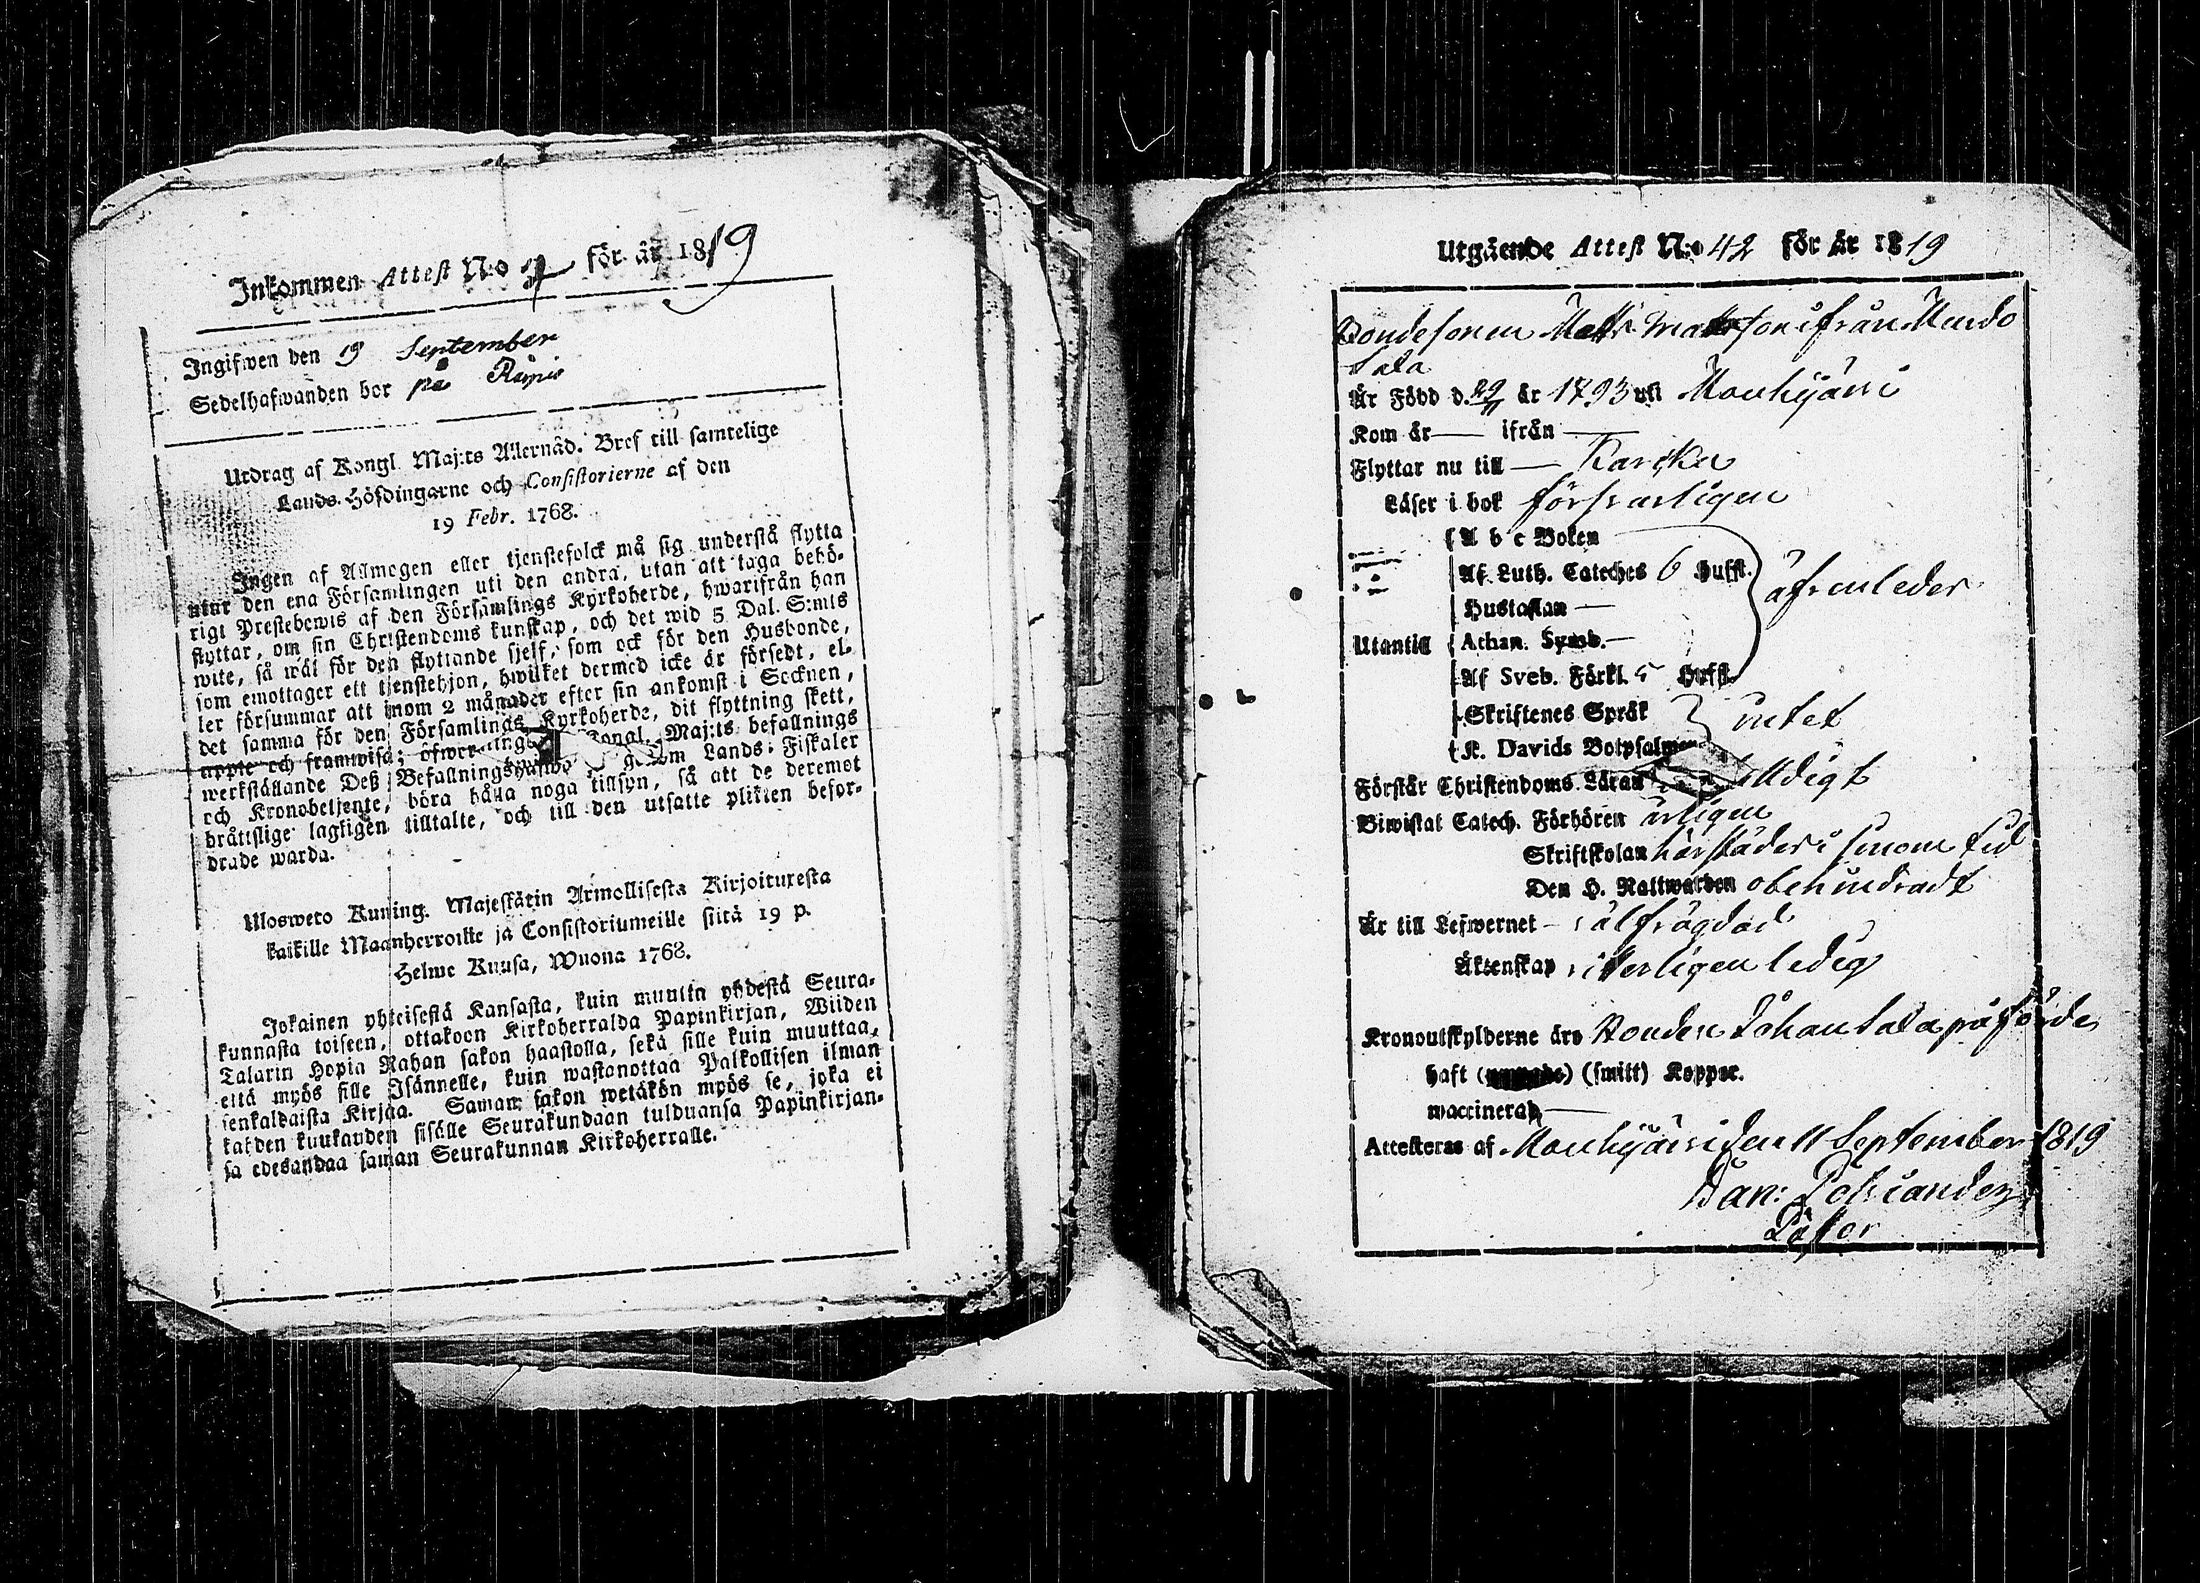 Inkommen Attest N:o 7 för år 1819
Ingifwen den 19 September
Sedelhafwanden bor på
Utdrag af Kongl. Maj:ts Allernåd. Bref till samtelige
Lands-Höfdingarne och Consistorierne af den
19 Febr. 1768.
Ingen af Allmogen eller tjenstefolck må sig understå flytta
utur den ena Församlingen uti den andra, utan att taga behö-
rigt Prestebewis af den Församlings Kyrkoherde, hwarifrån han
flyttar, om sin Christendoms kunskap, och det wid 5 Dal. S:mts
wite, så wäl för den flyttande sjelf, som ock för den Husbonde,
som emottager ett tjenstehjon, hwilket dermed icke är försedt, el-
ler försummar att inom 2 månader efter sin ankomst i Socknen,
det samma för den Församlings Kyrkoherde, dit flyttning skett,
uppte och framwisa; öfwer Kongl. Maj:ts befallnings
werkställande Deß Befallningshafwande genom Lands-Fiskaler
och Kronobetjente, böra hålla noga tillsyn, så att de deremot
bråttslige lagligen tilltalte, och till den utsatte plikten befor-
drade warda.
Ulosweto Kuning. Majestätin Armollisesta Kirjoituxesta
kaikille Maanherroille ja Consistoriumeille siitä 19 p.
Helme Kuusa, Wuona 1768.
Jokainen yhteisestä Kansasta, kuin muutin yhdestä Seura-
kunnasta toiseen, ottakoon Kirkoherralda Papinkirjan, Wiiden
Talarin Hopia Rahan sakon haastolla, sekä sille kuin muuttaa,
että myös sille Isännelle, kuin wastanottaa Palkollisen ilman
senkaldaista Kirjaa. Saman sakon wetäkön myös se, joka ei
kahden kuukauden sisälle Seurakundaan tulduansa Papinkirjan-
sa edesandaa saman Seurakunnan Kirkoherralle.
Utgående Attest N:o 42 för år 1819
Bondesonen Matts Mattsson ifrån Mundo
Sala
Är Född d. 29/11 år 1793 uti Mouhijärvi
Kom år — ifrån —
Flyttar nu till — Karcku
Läser i bok försvarligen
A b c Boken
Af Luth. Cateches 6 Hufst.
Hustaflan — äfvenledes
Utantill Athan. Symb. —
Af Sveb. Förkl. 5 Hufst.
Skriftenes Språk
intet
K. Davids Botpsalmer
Förstår Christendoms Läran
Biwistat Catech. Förhören årligen
Skriftskolan härstädes i sinom tid
Den H. Nattwarden obehindradt
Är till Lefwernet — välfrägdad
Äktenskap vitterligen ledig
Kronoutskylderne äro Bonden Johan Sala påförde
haft (smitt) Koppor.
waccinerad —
Attesteras af Mouhijärvi den 11 September 1819
Dan: Polviander
Pastor